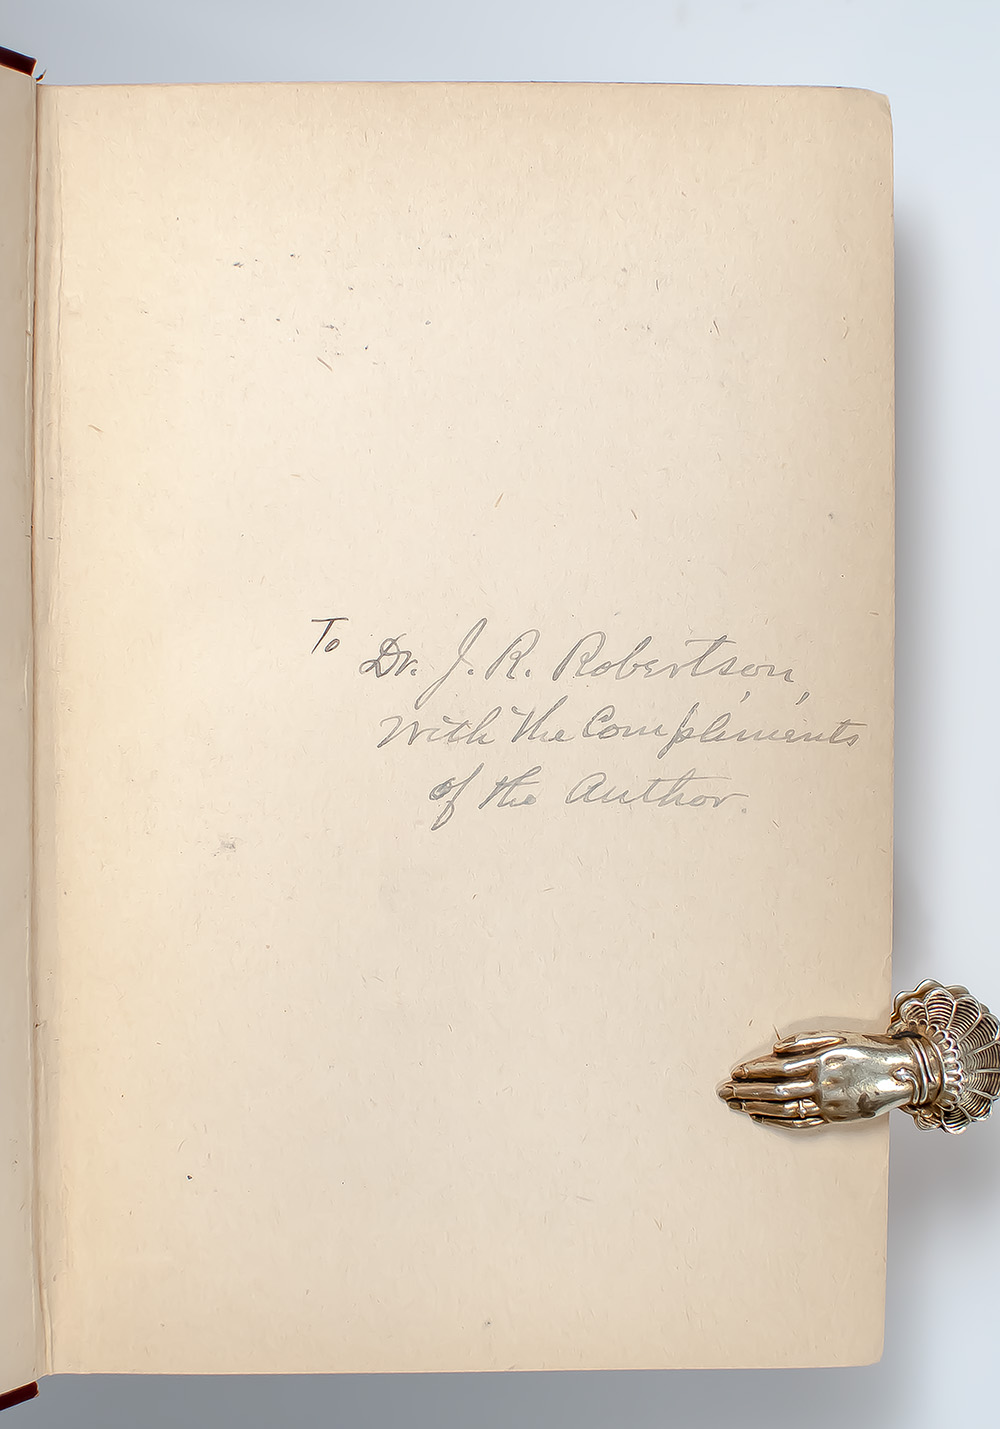 To Dr. J. R. Robertson,
With the Compliments
of the Author.